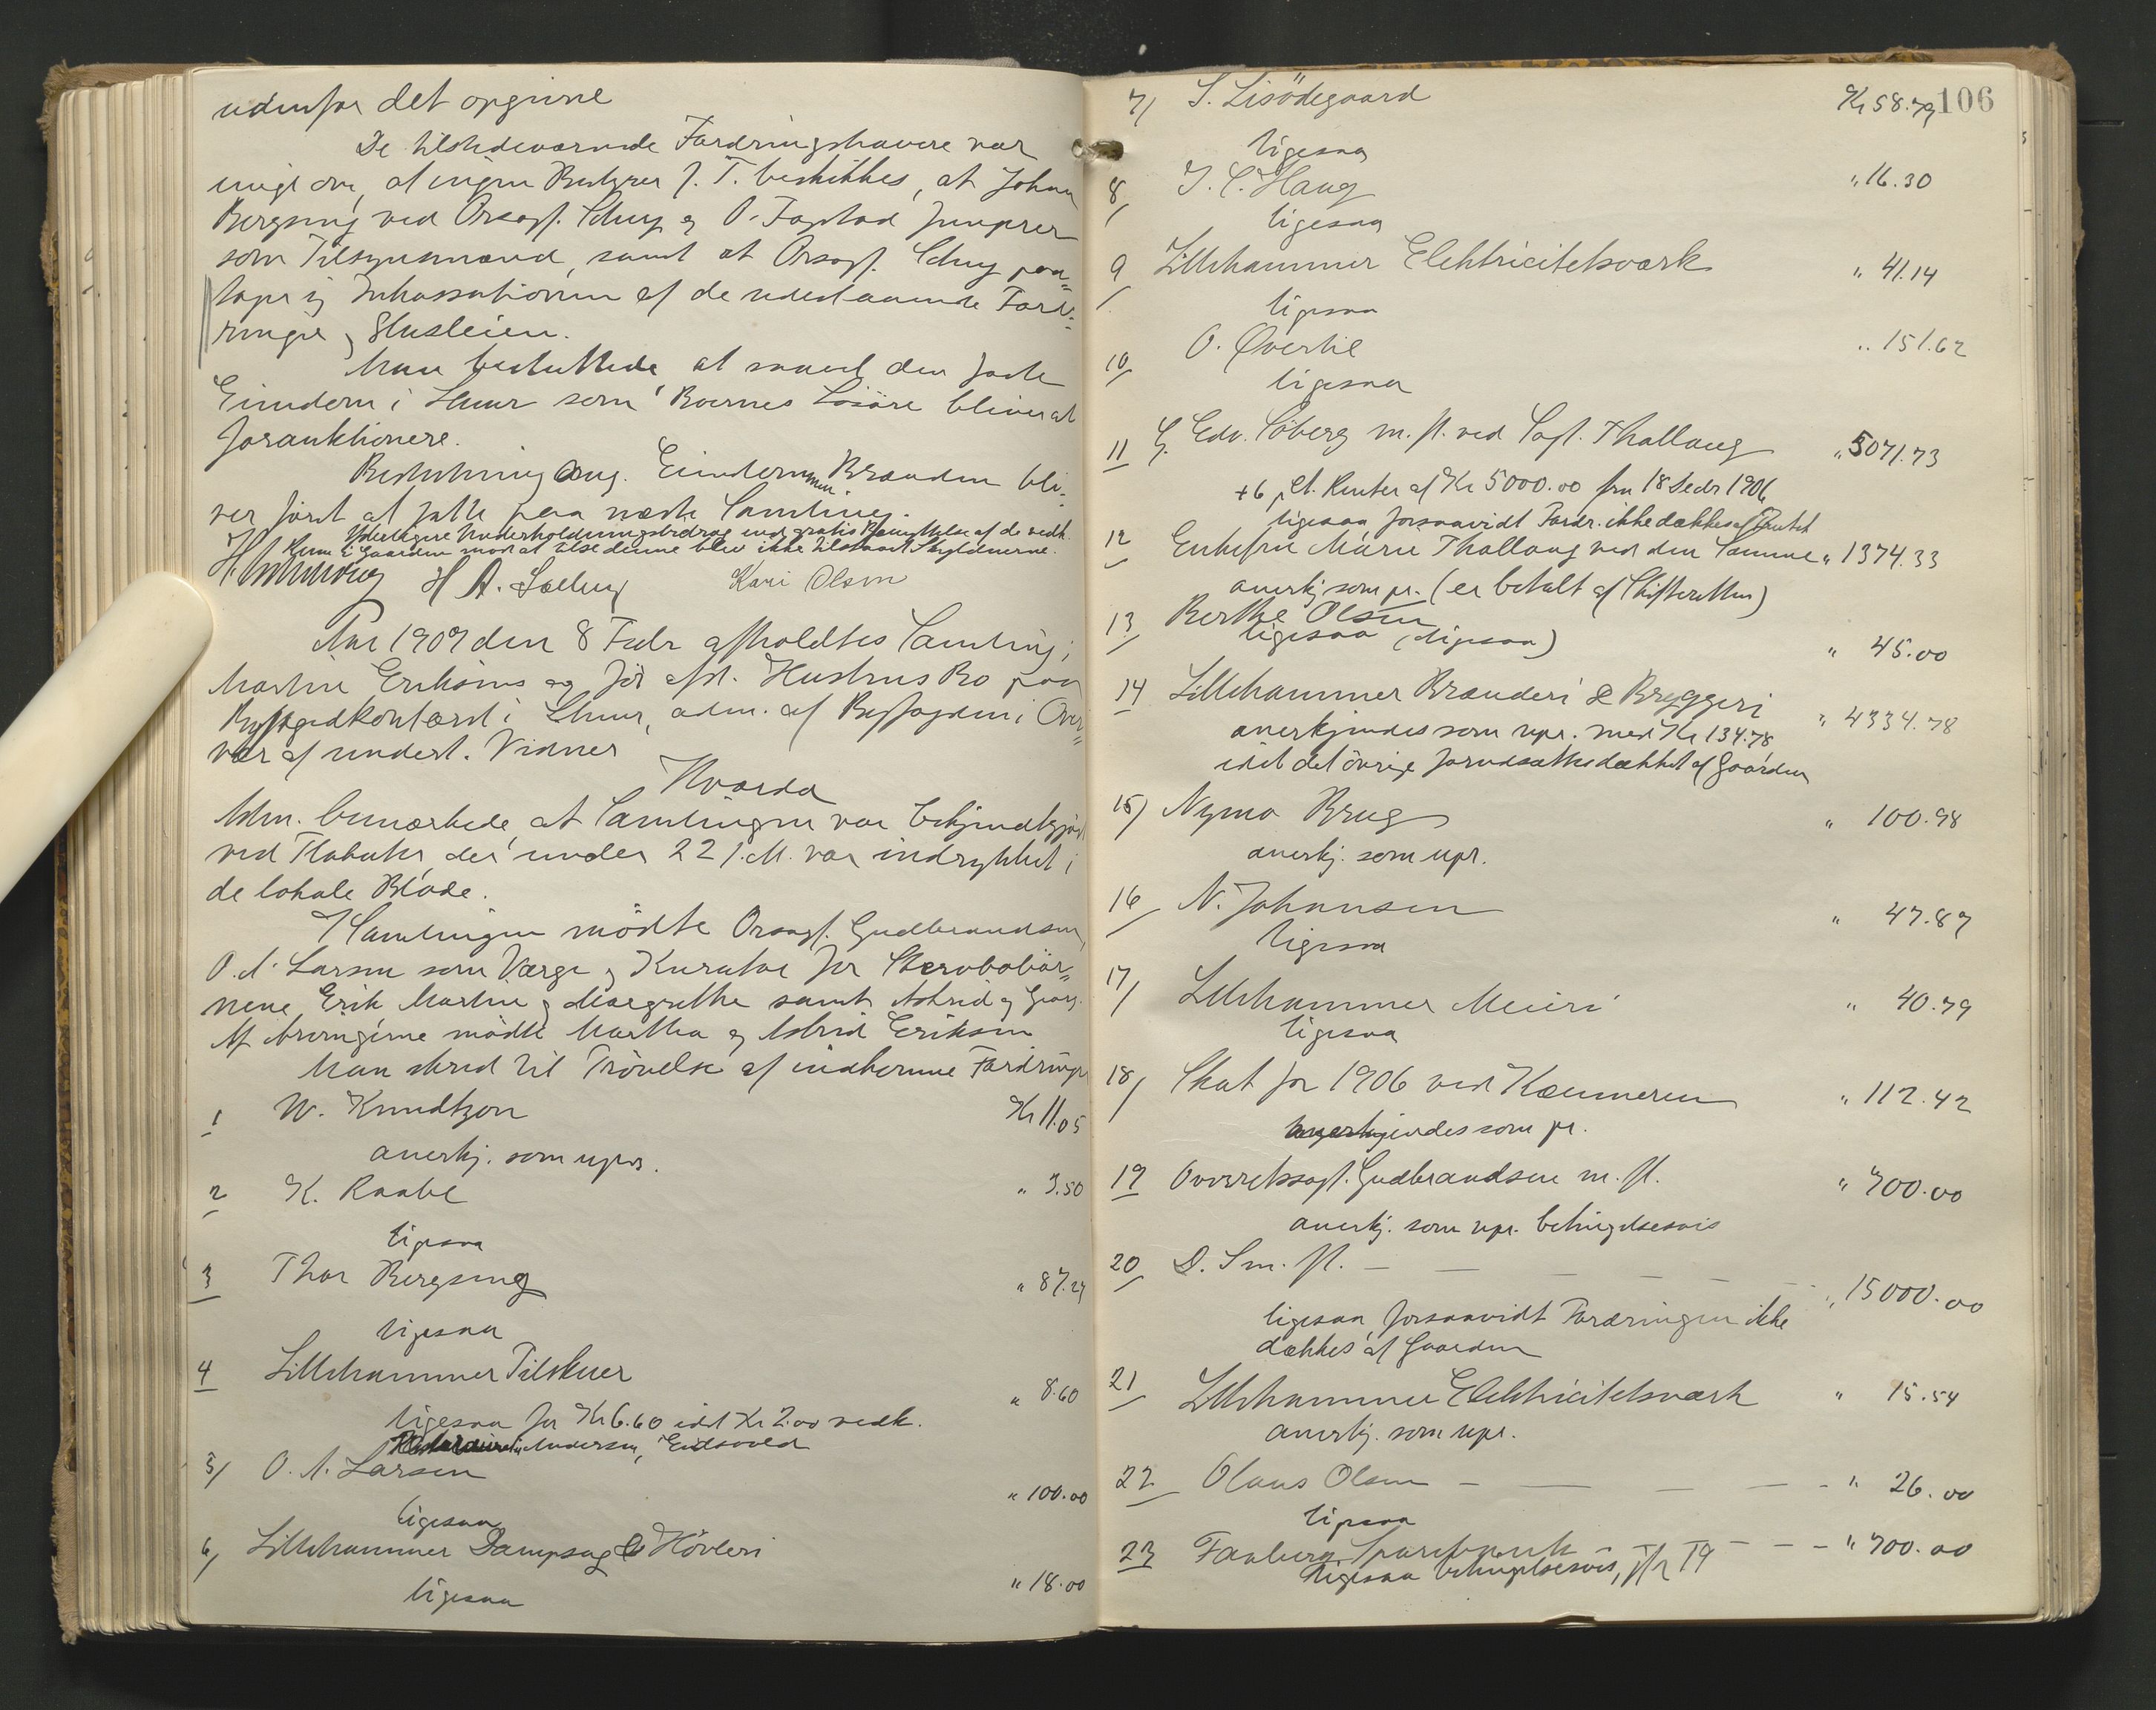 udenfor det opgivne
De tilstedeværende Fordringshavere var
enige om, at ingen Bestyrer f. T. beskikkes, at Johan
Bergseng ved Orsagf. Schug og O. Fagstad fungerer
som Tilsynsmænd, samt at Orsagf. Schug paa=
tager sig Inkassationen af de udestaaende Ford=
ringer og Husleien.
Man besluttede at saavel den faste
Eiendom i Lhmr som Boernes Lösöre bliver at
forauktionere.
Beslutning ang. Eiendommen Brænden bli=
ver först at fatte paa næste Samling.
Yderligere Underholdningsbidrag end gratis Benyttelse af de vedk.
Rum i Gaarden mod at tilse denne blev ikke tilstaaet Skyldnerne.
H. A. Solberg Kari Olsen
Aar 1907 den 8 Febr afholdtes Samling i
Martin Eriksens og för afd. Hustrus Bo paa
Byfogedkontoret i Lhmr, adm. af Byfogden i Over=
vær af undert. Vidner
Hvorda
Adm. bemærkede, at Samlingen var bekjendtgjort
ved Plakater, der under 22 f. M. var indrykket i
de lokale Blade.
I Samlingen mödte Orsagf. Gudbrandsen,
O. A. Larsen som Værge og Kurator for Stervbobör=
nene Erik Martin og Margrethe samt Astrid og Georg.
Af Arvingerne mödte Martha og Astrid Eriksen
Man skred til Prövelse af indkomne Fordringer
1 W. Knudtzon Kr 11.05
anerkj. som upr.
2 K. Raabe " 3.50
ligesaa
3 Thor Bergseng " 87.29
ligesaa
4 Lillehammer Tilskuer " 8.60
ligesaa for Kr 6.60 idet Kr 2.00 vedk.
Andersen, Eidsvold
5/ O. A. Larsen " 100.00
ligesaa
6/ Lillehammer Dampsag & Hövleri " 18.00
ligesaa
106
7/ S. Lisödegaard Kr 58.79
ligesaa
8/ J. C. Haug " 16.30
ligesaa
9/ Lillehammer Elektricitetsværk " 41.14
ligesaa
10/ O. Øverlie " 151.62
ligesaa
11 G. Edv. Söberg m. fl. ved Sagf. Thallaug " 5071.73
+ 6 pCt. Renter af Kr 5000.00 fra 18 Decbr 1906
ligesaa forsaavidt Fordr. ikke dækkes af Pantet
12 Enkefru Marie Thallaug ved den Samme " 1374.33
anerkj. som pr. (er betalt af Skifteretten)
13/ Berthe Olsen
ligesaa (ligesaa) " 45.00
14 Lillehammer Brænderi & Bryggeri " 4334.78
anerkjendes som upr. med Kr 134.78
idet det övrige forudsættes dækket af Gaarden
15/ Nymo Brug " 100.98
anerkj. som upr.
16/ N. Johansen " 47.87
ligesaa
17/ Lillehammer Meieri " 40.79
ligesaa
18/ Skat for 1906 ved Kæmneren " 112.42
anerkjendes som pr.
19 Overretssagf. Gudbrandsen m. fl. " 700.00
anerkj. som upr. betingelsesvis
20/ D. S. m. fl. — — — — — " 15000.00
ligesaa forsaavidt Fordringen ikke
dækkes af Gaarden
21/ Lillehammer Elektricitetsværk " 15.54
anerkj. som upr.
22/ Olaus Olsen — — — — " 26.00
ligesaa
23 Faaberg Sparebank — — — — " 700.00
ligesaa betingelsesvis, jfr 19